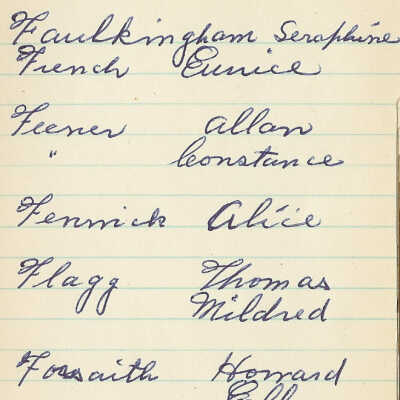 Faulkingham Seraphine
French Eunice
Feener Allan
" Constance
Fenwick Alice
Flagg Thomas
Mildred
Forsaith Howard